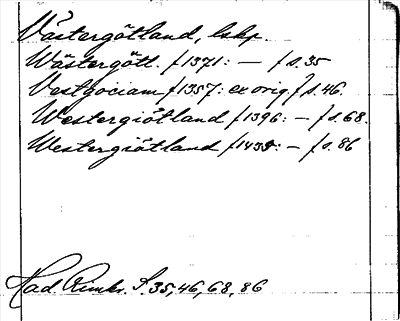 Västergötland, lskp.
Wästergötl. /1371: — / s. 35
Vestgociam /1357: ex orig./ s. 46.
Westergiötland /1396: — / s. 68.
Westergiötland /1435: — / s. 86
Had. Rimkr. S. 35, 46, 68, 86